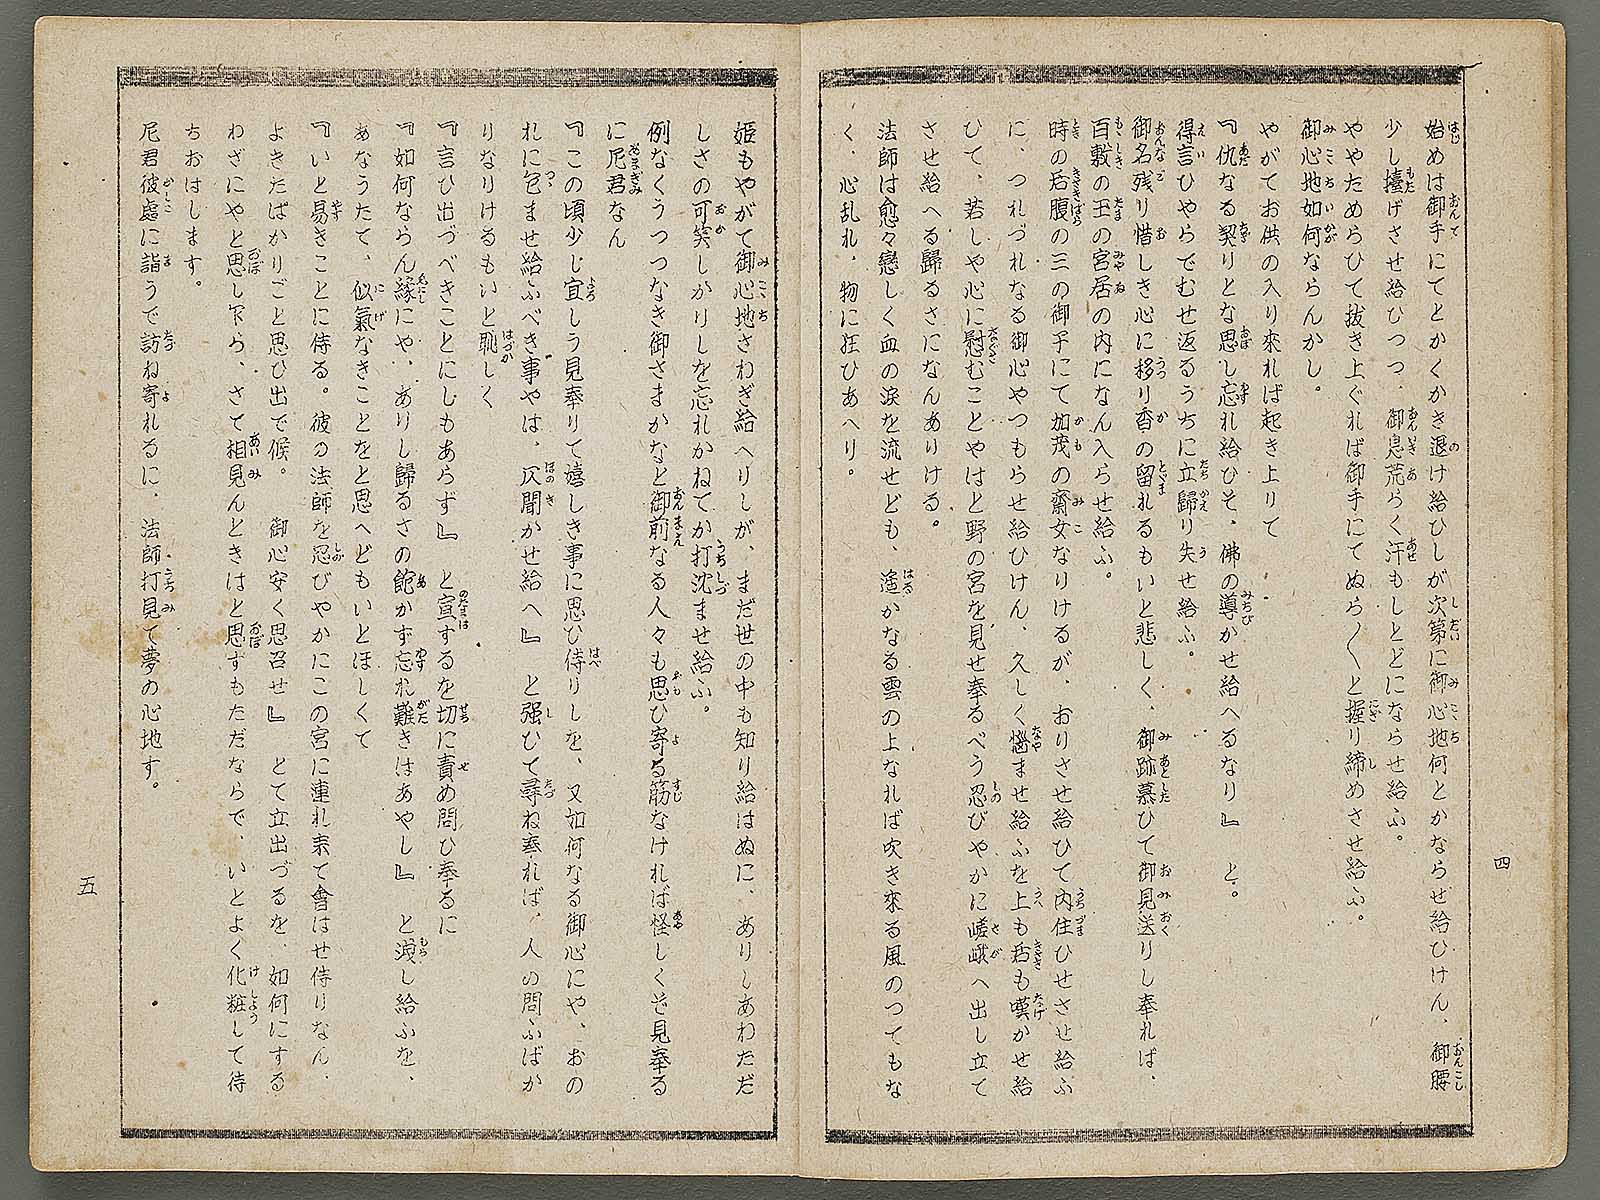 始めは御手にてとかくかき退け給ひしが次第に御心地何とかならせ給ひけん、御腰
少し擡げさせ給ひつつ、御息荒らく汗もしとどにならせ給ふ。
ややためらひて抜き上ぐれば御手にてぬら〱と握り締めさせ給ふ。
御心地如何ならんかし。
やがてお供の入り來れば起き上りて
『仇なる契りとな思し忘れ給ひそ、佛の導かせ給へるなり』と。
得言ひやらでむせ返るうちに立歸り失せ給ふ。
御名残り惜しき心に移り香の留れるもいと悲しく、御跡慕ひて御見送りし奉れば、
百敷の玉の宮居の内になん入らせ給ふ。
時の后腹の三の御子にて加茂の齋女なりけるが、おりさせ給ひて内住ひせさせ給ふ
に、つれづれなる御心やつもらせ給ひけん、久しく惱ませ給ふを上も后も嘆かせ給
ひて、若しや心に慰むことやはと野の宮を見せ奉るべう忍びやかに嵯峨へ出し立て
させ給へる歸るさになんありける。
法師は愈々戀しく血の涙を流せども、遙かなる雲の上なれば吹き來る風のつてもな
く、心乱れ、物に狂ひあへり。
四
姫もやがて御心地さわぎ給へりしが、まだ世の中も知り給はぬに、ありしあわただ
しさの可笑しかりしを忘れかねてか打沈ませ給ふ。
例なくうつつなき御さまかなと御前なる人々も思ひ寄る筋なければ怪しくぞ見奉る
に尼君なん
『この頃少し宜しう見奉りて嬉しき事に思ひ侍りしを、又如何なる御心にや、おの
れに包ませ給ふべき事やは、仄聞かせ給へ』と强ひて尋ね奉れば、人の問ふばか
りなりけるもいと恥しく
『言ひ出づべきことにしもあらず』と宣するを切に責め問ひ奉るに
『如何ならん縁にや、ありし歸るさの飽かず忘れ難きはあやし』と洩し給ふを、
あなうたて、似氣なきことをと思へどもいとほしくて
『いと易きことに侍る。彼の法師を忍びやかにこの宮に連れ来て會はせ侍りなん、
よきたばかりごと思ひ出で候。御心安く思召せ』とて立出づるを、如何にする
わざにやと思し乍ら、さて相見んときはと思すもただならで、いとよく化粧して待
ちおはします。
尼君彼處に詣うで訪ね寄れるに、法師打見て夢の心地す。
五